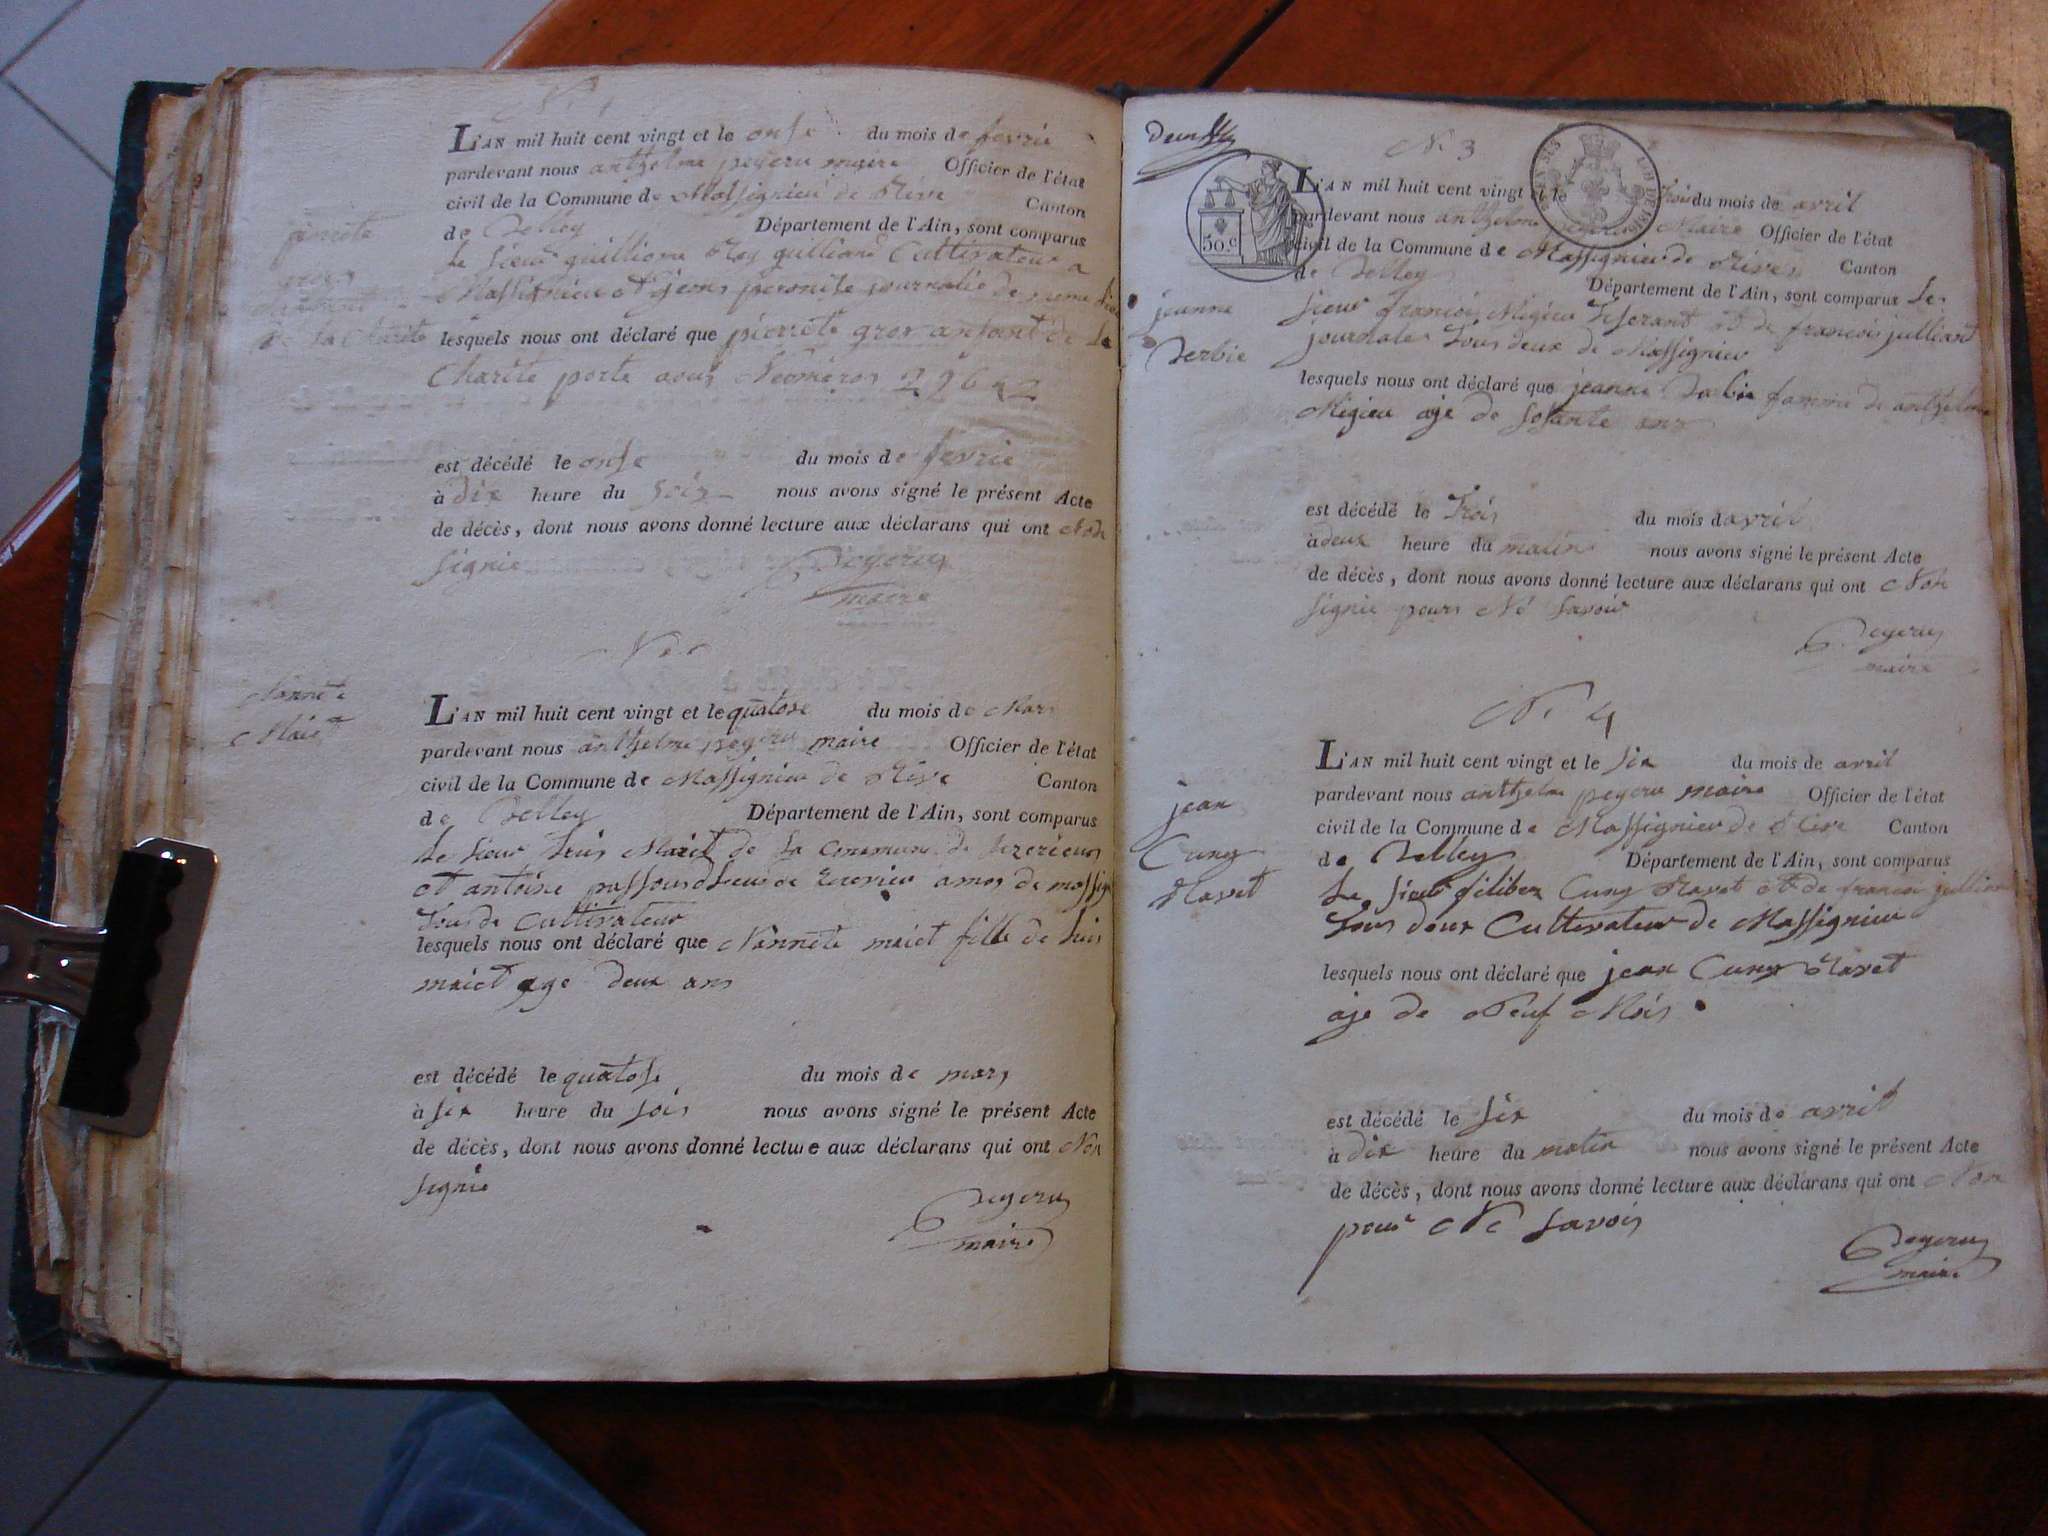 N. 1
L'AN mil huit cent vingt et le onse du mois de fevrie
pardevant nous anthelme peyeru maire Officier de l'état
civil de la Commune de Massignieu de Rive Canton
de Belley Département de l'Ain, sont comparus
le sieur guillione Rey gulliand Cultivateur a
Massignieu et jeons journalie de meme lieu
lesquels nous ont déclaré que pierrete gros anfant de la
Charite porte sous Neomeros
pierrete
gros
de la Charite
est décédé le onse du mois de fevrie
à dix heure du soir nous avons signé le présent Acte
de décès, dont nous avons donné lecture aux déclarans qui ont Non
signie
Peyeru
maire
Nannete
Maiet
L'AN mil huit cent vingt et le quatose du mois de Mars
pardevant nous anthelme peyeru maire Officier de l'état
civil de la Commune de Massignieu de Rive Canton
de Belley Département de l'Ain, sont comparus
le sieur Luis Maiet de la Commune de
et antoine de amos de massig
tous de Cultivateur
lesquels nous ont déclaré que Nannete maiet fille de Luis
maiet age deux ans
est décédé le quatose du mois de mars
à six heure du soir nous avons signé le présent Acte
de décès, dont nous avons donné lecture aux déclarans qui ont Non
signie
Peyeru
maire
N. 3
50.c
L'AN mil huit cent vingt et le trois du mois de avril
pardevant nous anthelme Maire Officier de l'état
civil de la Commune de Massignieu de Rives Canton
de Belley Département de l'Ain, sont comparus Le
sieur francois Migieu et de francois julliant
journalie tous deux de Massignieu
lesquels nous ont déclaré que jeanne Derbie famme de anthelme
Migieu aje de sosante ans
jeanne
Derbie
est décédé le trois du mois de avril
à deux heure du matin nous avons signé le présent Acte
de décès, dont nous avons donné lecture aux déclarans qui ont Non
signie pours Né savoir
Peyeru
maire
N. 4
jean
Cuny
Ravet
L'AN mil huit cent vingt et le six du mois de avril
pardevant nous anthelme peyeru maire Officier de l'état
civil de la Commune de Massignieu de Rive Canton
de Belley Département de l'Ain, sont comparus
Le sieur filiber Cuny Ravet et de francois jullian
tous deux Cultivateur de Massignieu
lesquels nous ont déclaré que jean Cuny Ravet
aje de Neuf Mois
est décédé le six du mois de avril
à dix heure du matin nous avons signé le présent Acte
de décès, dont nous avons donné lecture aux déclarans qui ont Non
pour Ne savoir
Peyeru
maire